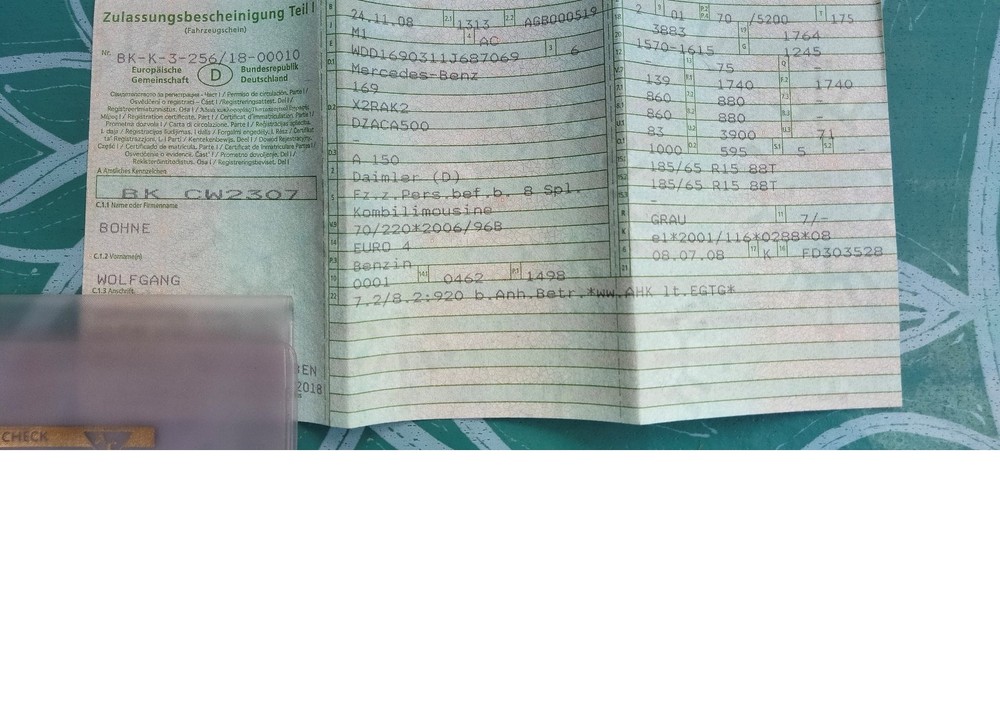 Zulassungsbescheinigung Teil I
(Fahrzeugschein)
Nr. BK-K-3-256/18-00010
Europäische Gemeinschaft
D
Bundesrepublik Deutschland
A Amtliches Kennzeichen
BK CW2307
C.1.1 Name oder Firmenname
BOHNE
C.1.2 Vorname(n)
WOLFGANG
C.1.3 Anschrift
BEN
2018
CHECK
24.11.08 2.1 1313 2.2 AGB000519
M1 4 AC
WDD1690311J687069 3 6
Mercedes-Benz
169
X2RAK2
DZACA500
-
A 150
Daimler (D)
Fz.z.Pers.bef.b. 8 Spl.
Kombilimousine
70/220*2006/968
EURO 4
Benzin
0001 0462 P.1 1498
7.2/8.2:920 b.Anh.Betr.*ww.AHK lt.EGTG*
2 01 70 /5200 T 175
3883 1764
1570-1615 G 1245
- 75 -
139 1740 1740
860 880 -
860 880 -
83 3900 71
1000 595 5 -
185/65 R15 88T
185/65 R15 88T
-
GRAU 11 7/-
e1*2001/116*0288*08
08.07.08 17 K 16 FD303528